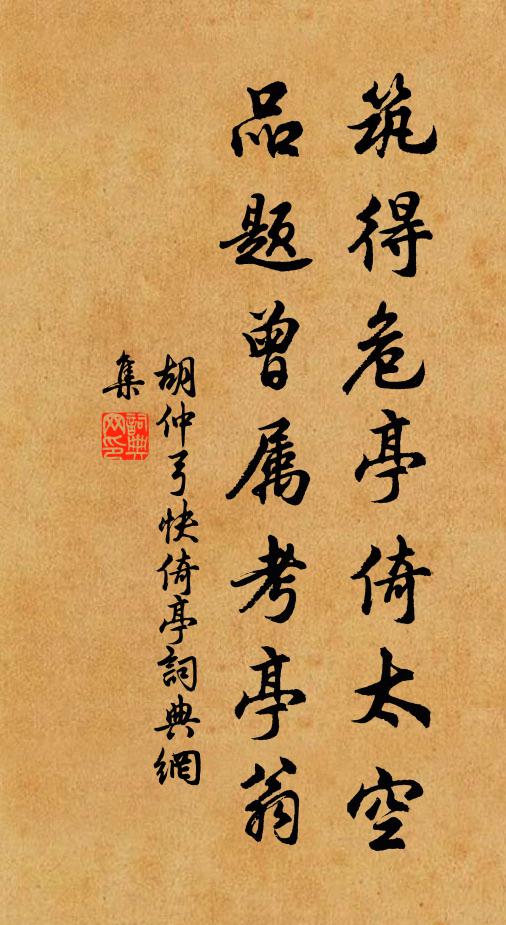 筑得危亭倚太空
品题曾属考亭翁
胡仲弓快倚亭詞典網
集
詞典网印